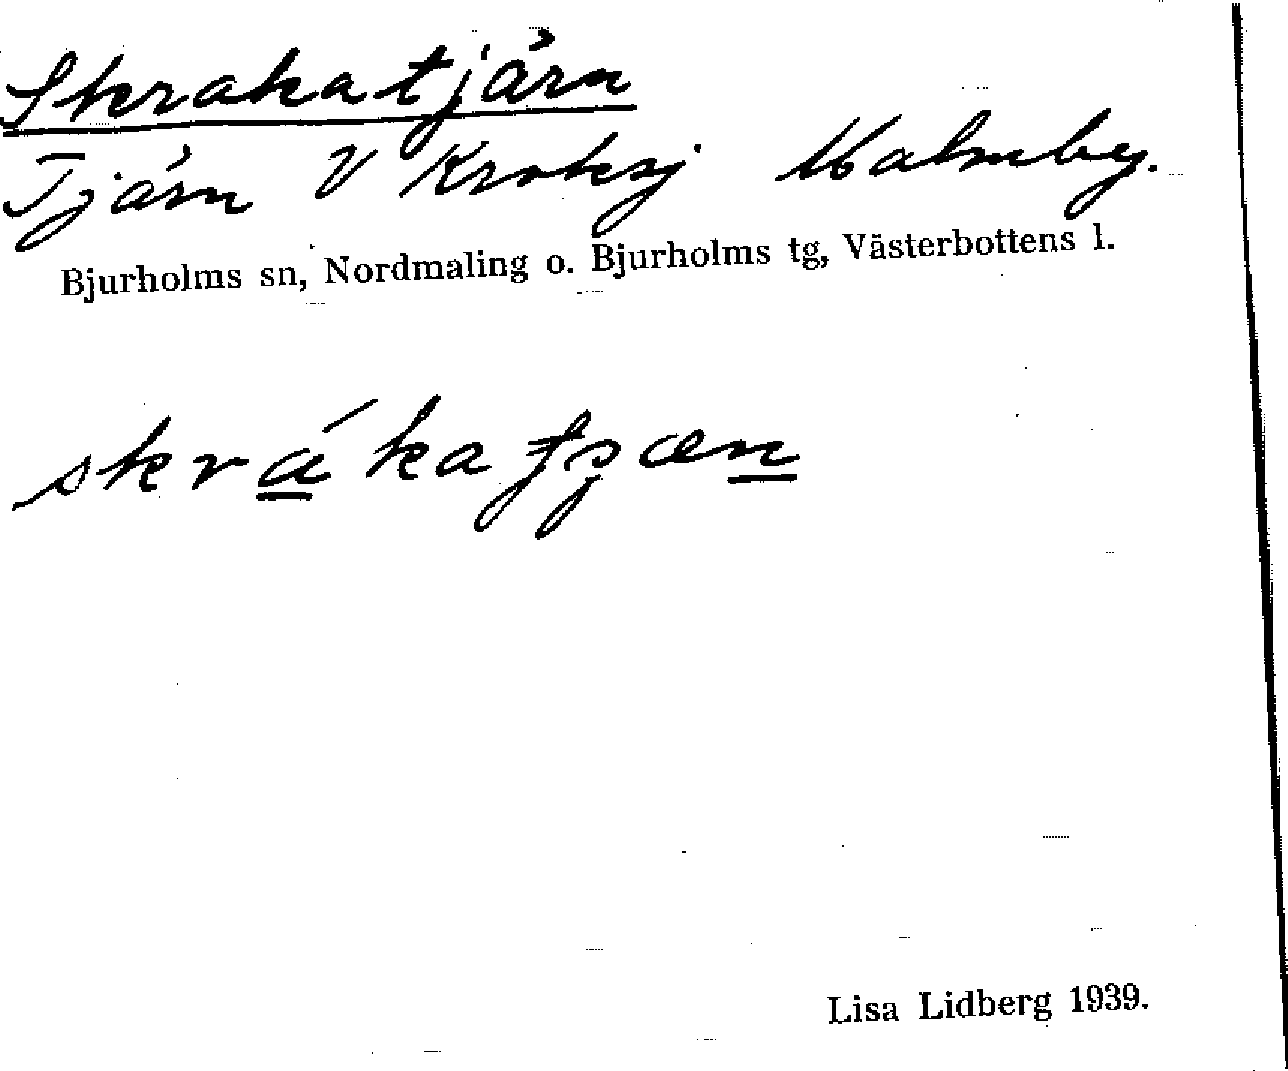 Skrakatjärn
Tjärn V Kroksj Malmby.
Bjurholms sn, Nordmaling o. Bjurholms tg, Västerbottens l.
Lisa Lidberg 1939.